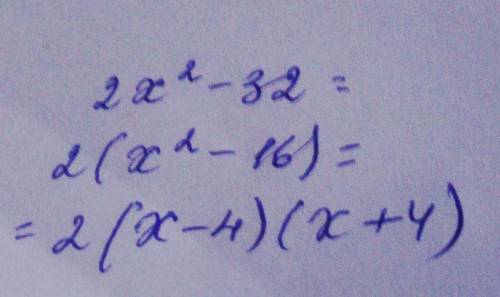 2x² - 32 =
2(x² - 16) =
= 2(x - 4)(x + 4)